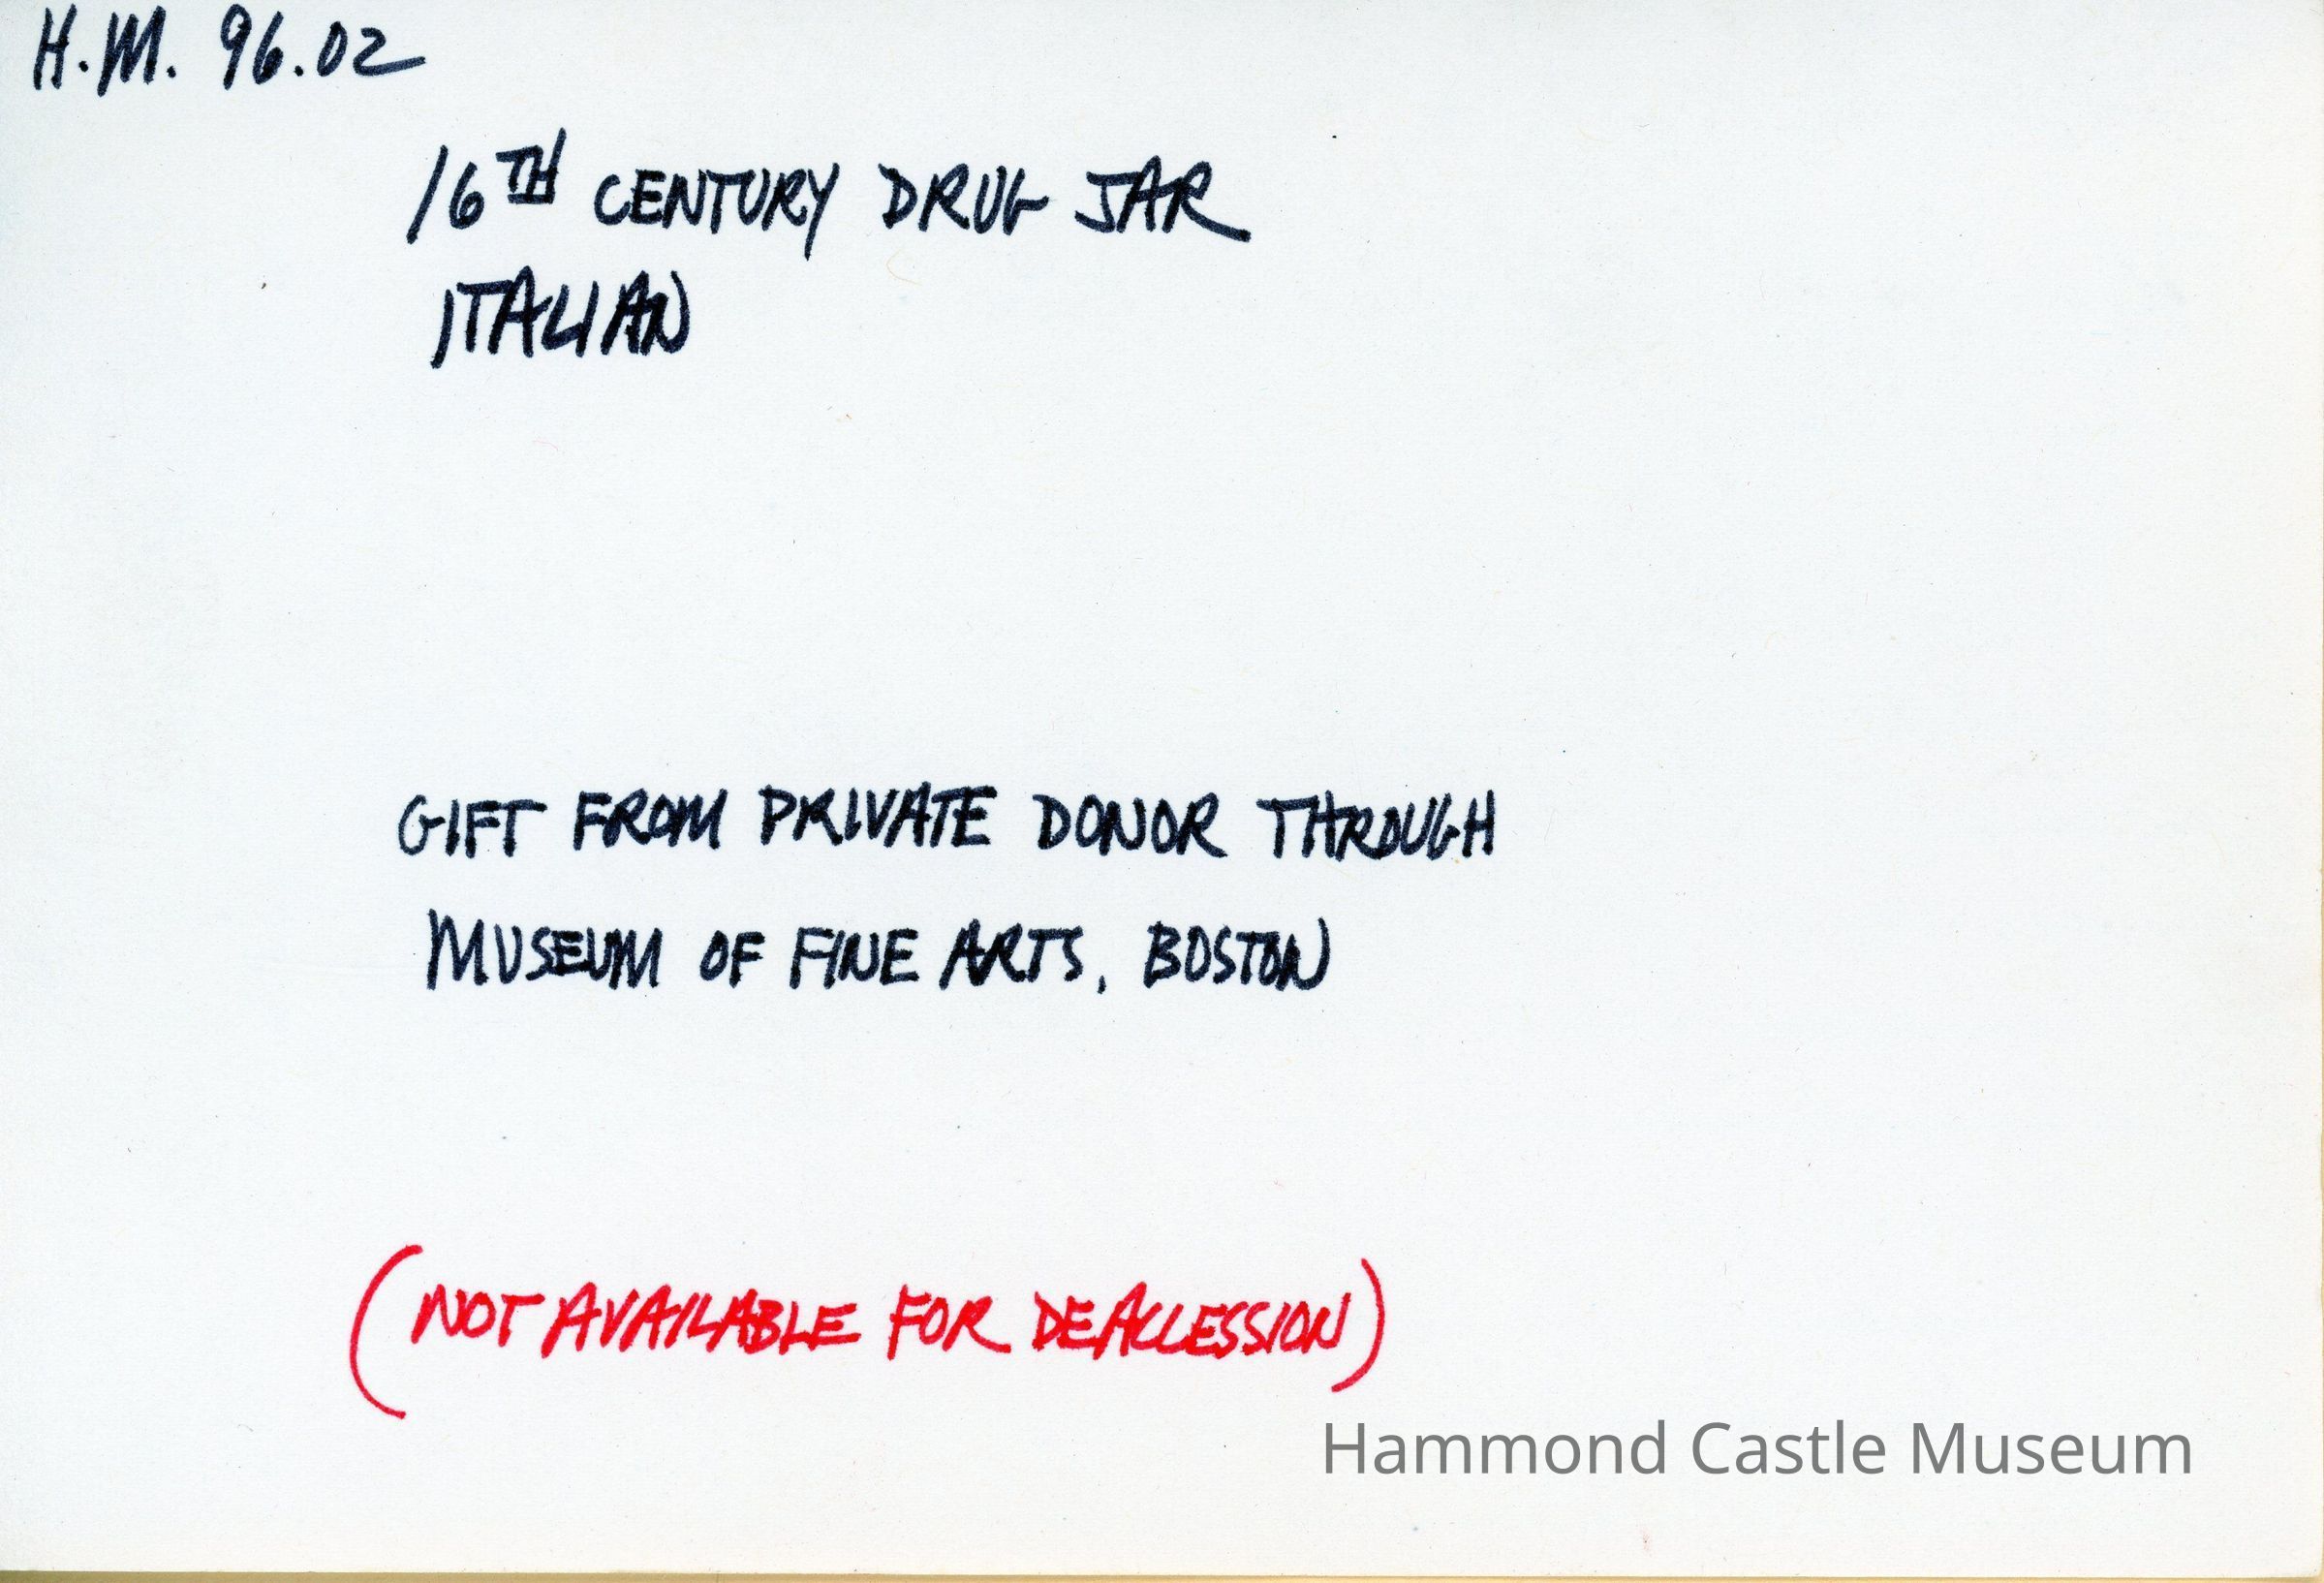 H.M. 96.02
16TH CENTURY DRUG JAR
ITALIAN
GIFT FROM PRIVATE DONOR THROUGH
MUSEUM OF FINE ARTS, BOSTON
(NOT AVAILABLE FOR DEACCESSION)
Hammond Castle Museum